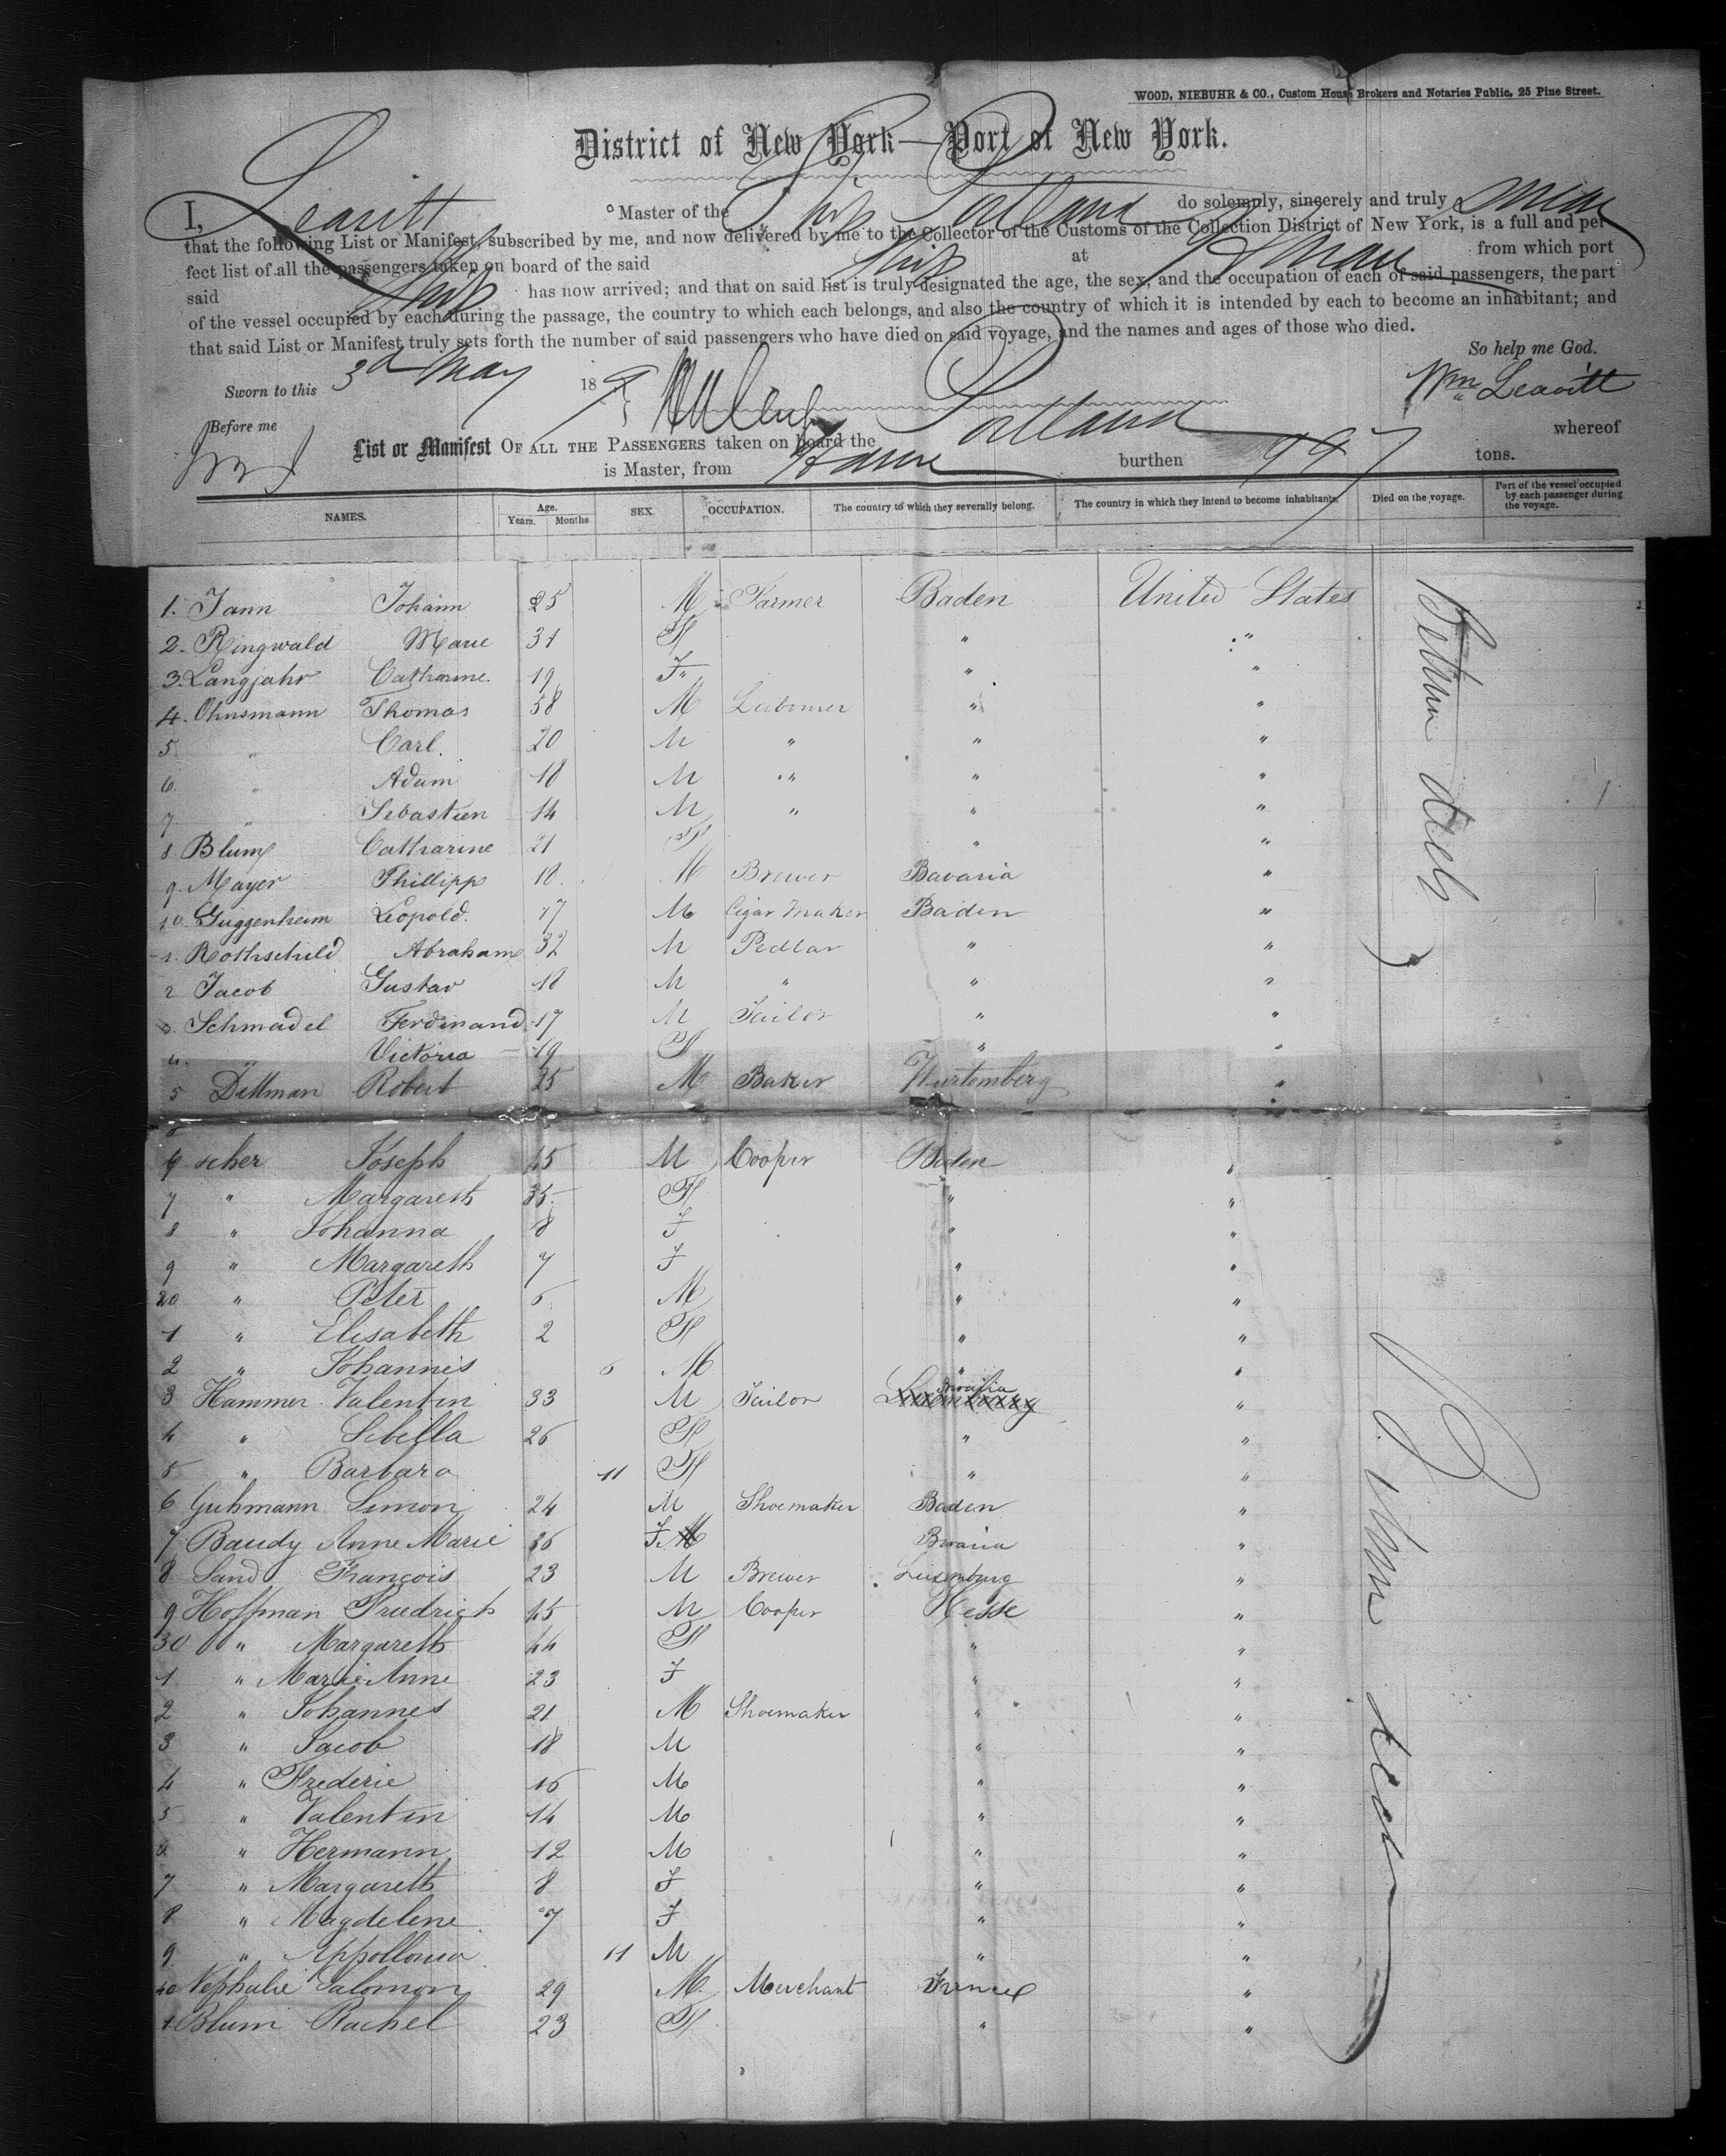 WOOD, NIEBUHR & CO., Custom House Brokers and Notaries Public, 25 Pine Street.
District of New York—Port of New York.
I, Leavitt Master of the Ship Portland do solemnly, sincerely and truly swear
that the following List or Manifest, subscribed by me, and now delivered by me to the Collector of the Customs of the Collection District of New York, is a full and per
fect list of all the passengers taken on board of the said Ship at Havre from which port
said Ship has now arrived; and that on said list is truly designated the age, the sex, and the occupation of each of said passengers, the part
of the vessel occupied by each during the passage, the country to which each belongs, and also the country of which it is intended by each to become an inhabitant; and
that said List or Manifest truly sets forth the number of said passengers who have died on said voyage, and the names and ages of those who died.
So help me God.
Sworn to this 3d May 18 Wm Leavitt
Before me
List or Manifest OF ALL THE PASSENGERS taken on board the Portland whereof
is Master, from Havre burthen 997 tons.
NAMES. Age. Years. Months SEX. OCCUPATION. The country to which they severally belong. The country in which they intend to become inhabitants. Died on the voyage. Part of the vessel occupied by each passenger during the voyage.
1. Jann Johann 25 M Farmer Baden United States
2. Ringwald Marie 31 F " "
3. Langjahr Catharine. 19 F " "
4. Ohnsmann Thomas 58 M Labourer " "
5. " Carl. 20 M " " "
6. " Adam 18 M " " "
7 " Sebastien 14 M " " "
8 Blum Catharine 21 F " "
9. Mayer Phillipp 18. M Brewer Bavaria "
10. Guggenheim Leopold. 17 M Cigar Maker Baden "
1. Rothschild Abraham 32 M Pedlar " "
2 Jacob Gustav 18 M " " "
3. Schmadel Ferdinand 17 M Tailor " "
4. " Victoria 19 F " "
5 Dittman Robert 25 M Baker Wurtemberg "
6 scher Joseph 45 M Cooper Baden "
7 " Margareth 35 F " "
8 " Johanna 8 F " "
9 " Margareth 7 F " "
20 " Peter 6 M " "
1 " Elisabeth 2 F " "
2 " Johannes 6 M " "
3 Hammer Valentin 33 M Tailor Bvaria "
4 " Sibella 26 F " "
5 " Barbara 11 F " "
6 Guhmann Simon 24 M Shoemaker Baden "
7 Baudy Anne Marie 26 F Bvaria "
8 Sand François 23 M Brewer Luxemburg "
9 Hoffman Friedrich 45 M Cooper Hesse "
30 " Margareth 44 F " "
1 " Marie Anne 23 F " "
2 " Johannes 21 M Shoemaker " "
3 " Jacob 18 M " "
4 " Frederic 16 M " "
5 " Valentin 14 M " "
6 " Hermann 12 M " "
7 " Margareth 8 F " "
8 " Magdelene 7 F " "
9 " Appollonia 11 M " "
40 Nephalie Salomon 29 M. Merchant France "
1 Blum Rachel 23 F " "
Between decks
Between decks